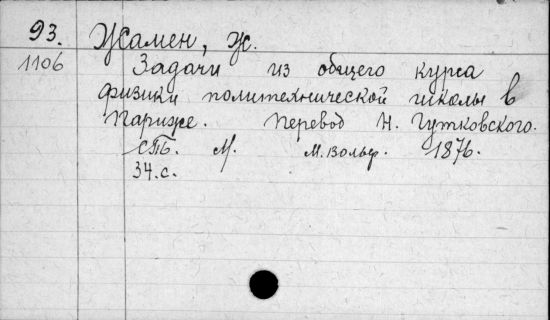 93. Жамен, Ж.
1106 Задачи из общего курса
физики политехнической школы в
Париже. Перевод Н. Гутковского.
СПБ. М. М. Вольф. 1876.
34.с.